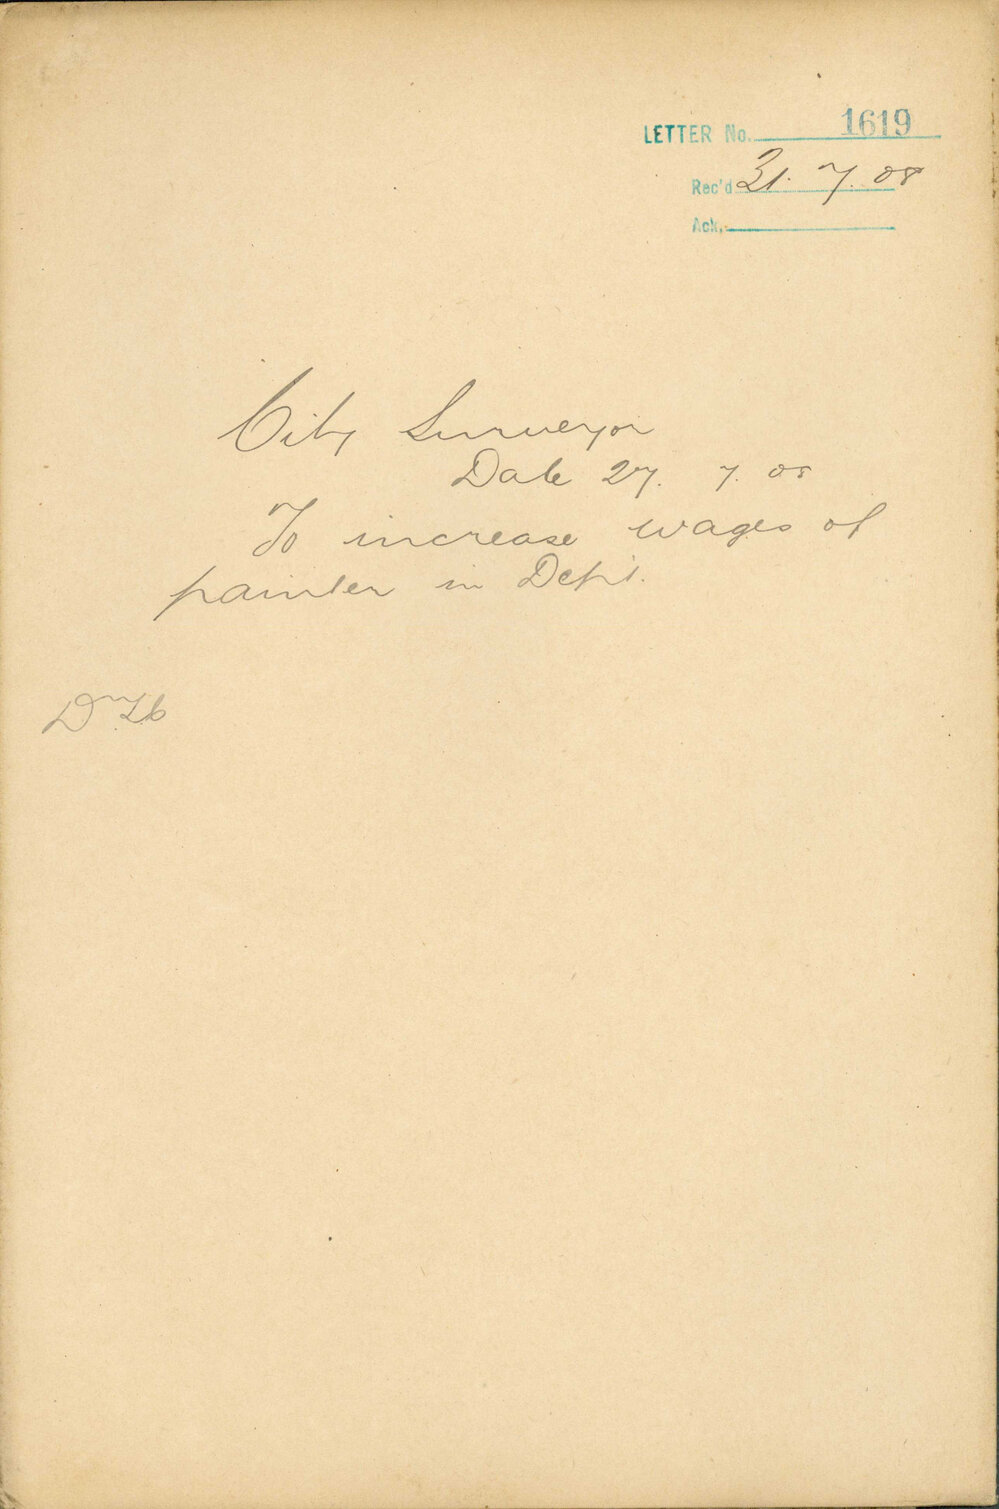 LETTER No. 1619
Rec'd 31. 7. 08
Ack.
City Surveyor
Date 27. 7. 08
To increase wages of
painter in Dept.